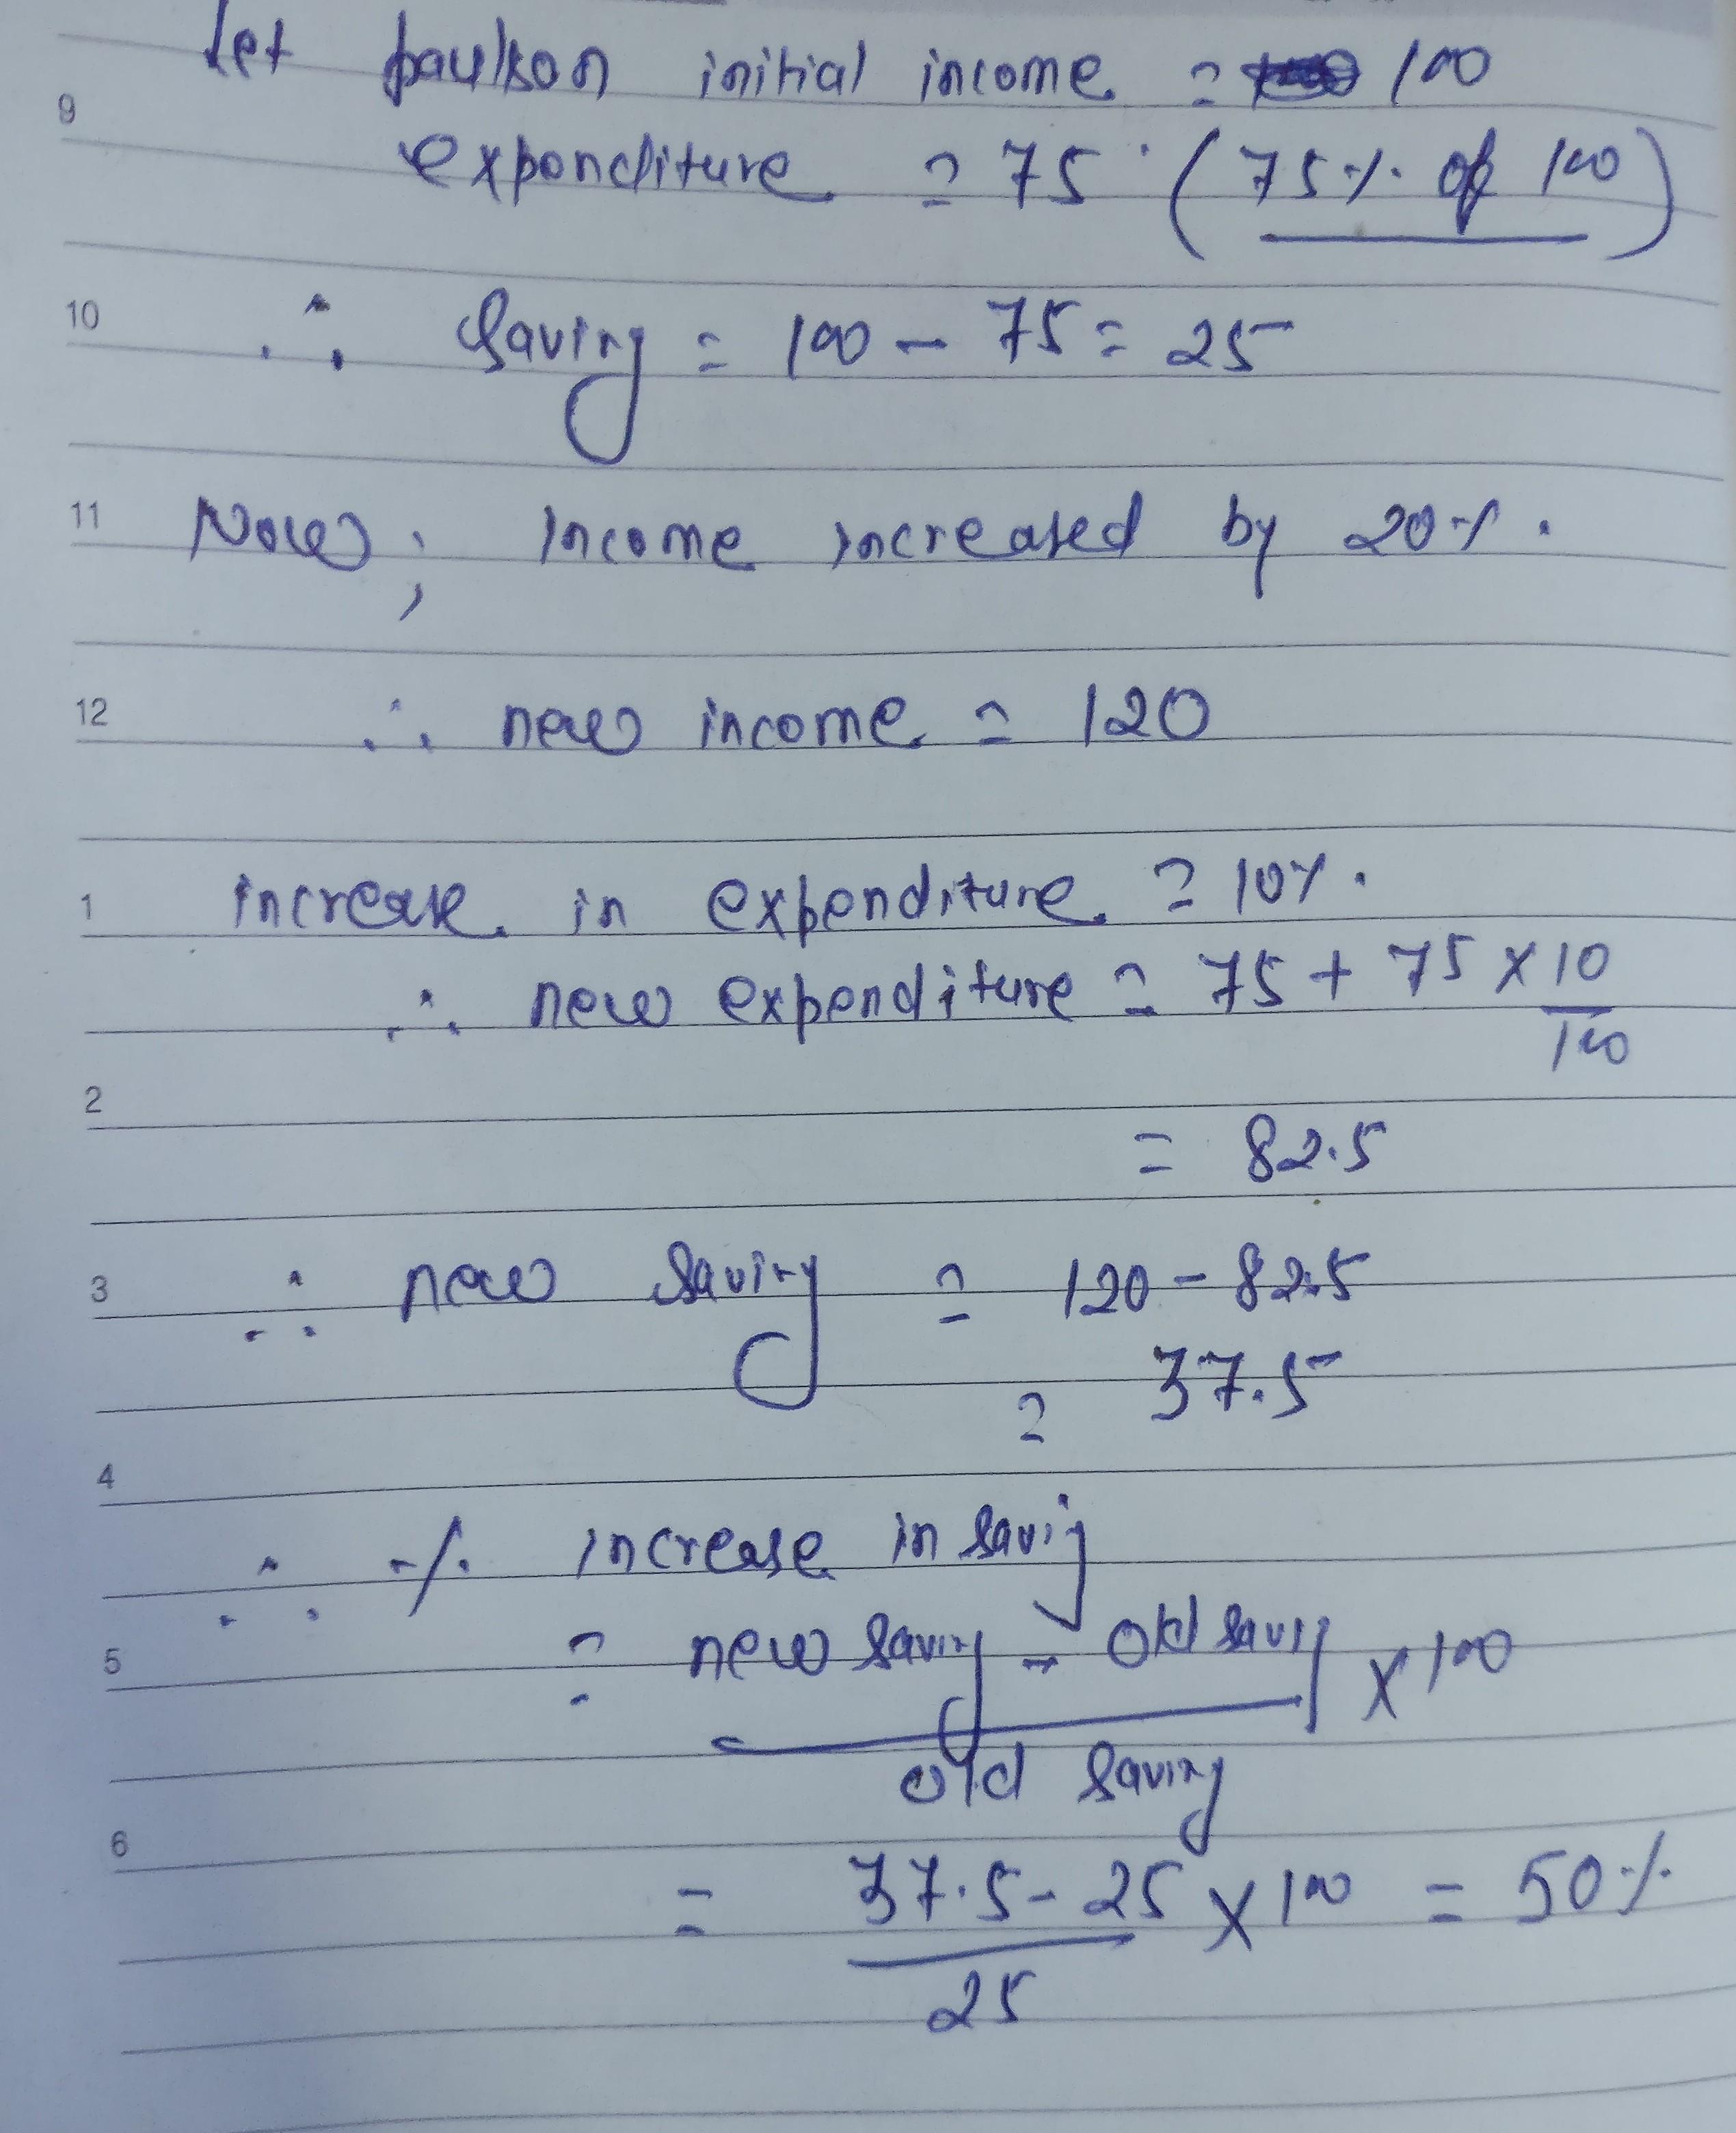 Let paulson initial income = 100
9
expenditure = 75 (75% of 100)
10
∴ Saving = 100 - 75 = 25
11 Now, Income increased by 20%.
12 ∴ new income = 120
1 increase in expenditure = 10%.
∴ new expenditure = 75 + 75 × 10/100
2
= 82.5
3 ∴ new Saving = 120 - 82.5
= 37.5
4
∴ % increase in savig
5 = new saving - old saving / old saving × 100
6
= 37.5 - 25 / 25 × 100 = 50%